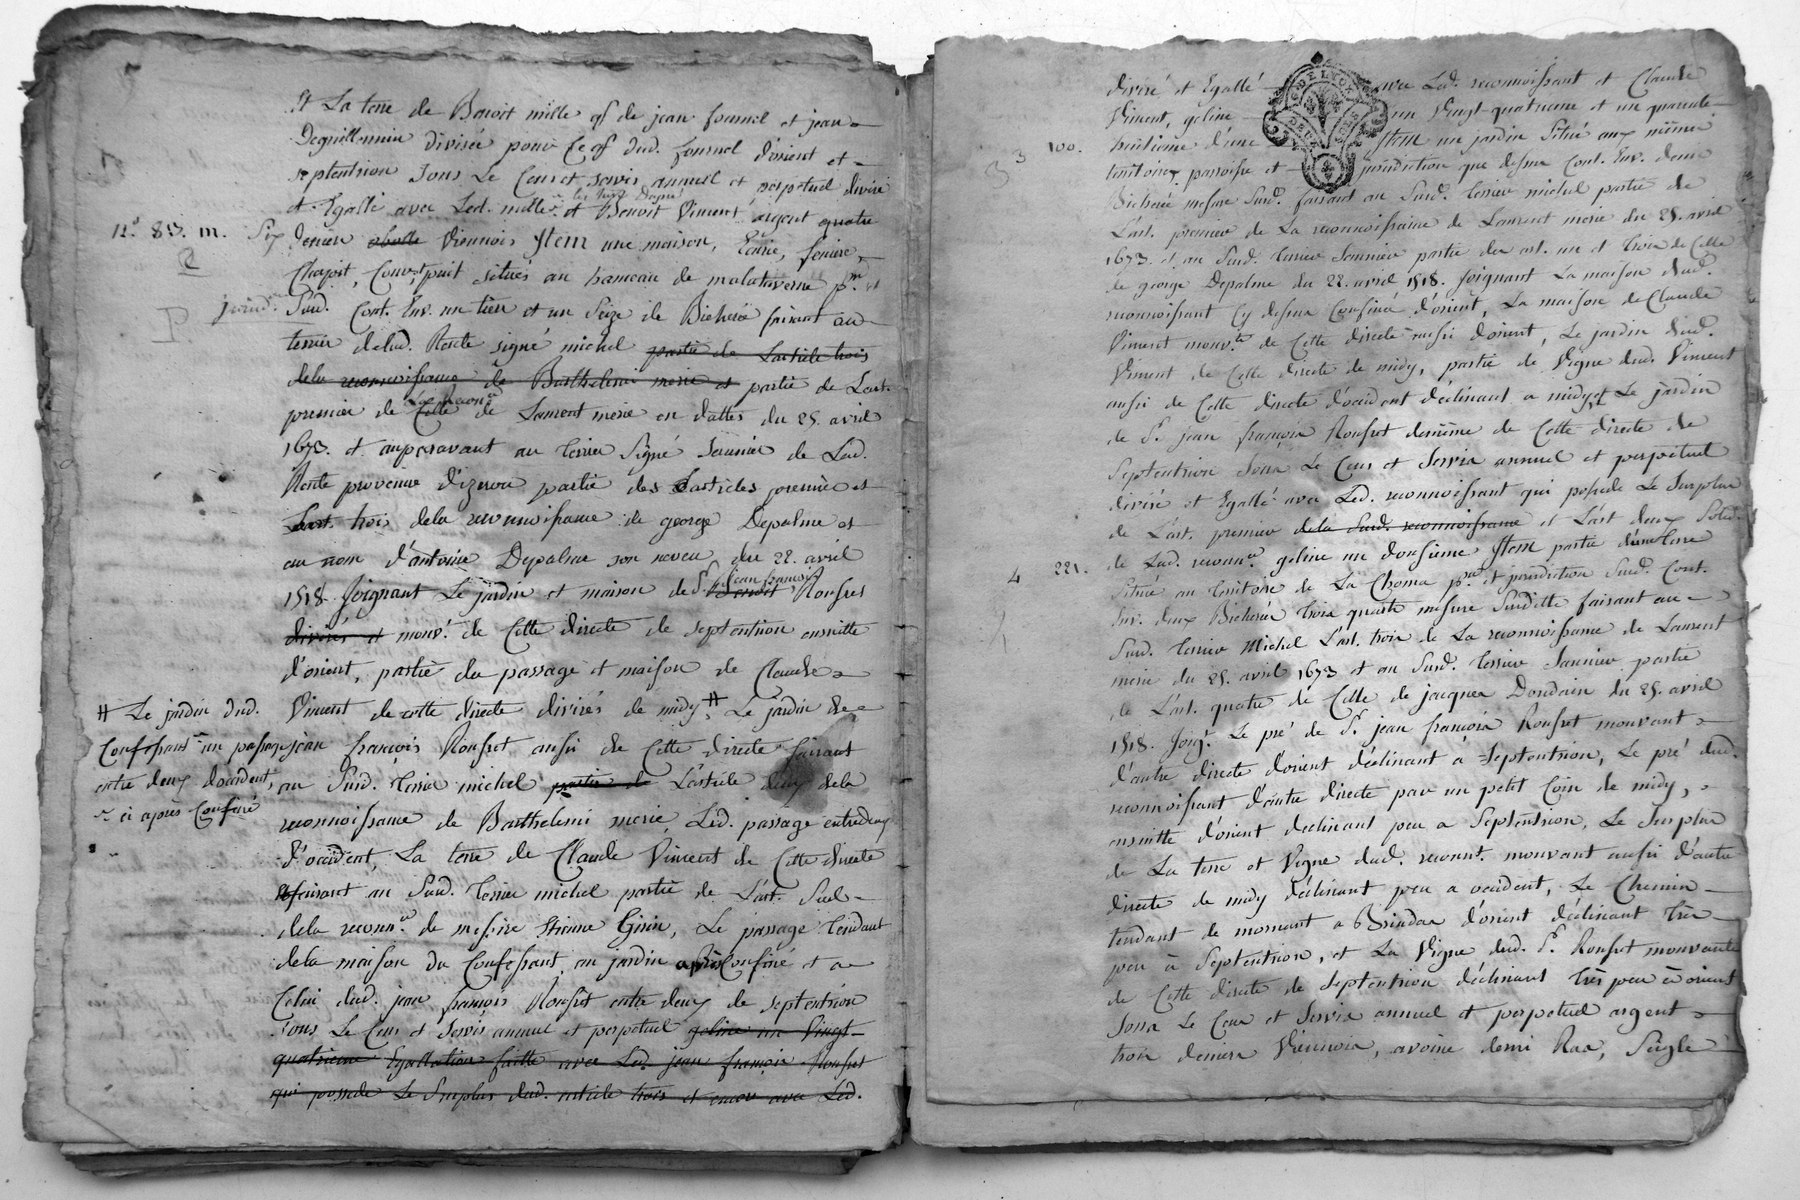 Et La terre de Benoit mille qf de jean fournel et jean
Deguillermin divisée pour Ce qf dud. fournel d'orient et
septentrion Sous Le Cens et servis annuel et perpetuel divisé
et Egallé avec Led. mille et Benoit Viment, argent quatre
N.º 83. m. Six Denier obolle Viennois Item une maison, Ecurie, feniere,
2
Chapit, Cour, puit situés au hameau de malataverne p.
jurid. Sud. Cont. Env. un tier et un Seize de Bicherée faisant au
terrier delad. Rente signé michel partie de Larticle trois
dela reconnoissance de Barthelemi merie et partie de Lart.
premier de Celle de Laurent merie en datte du 25. avril
1673. et auparavant au terrier Signé Saunier de Lad.
Rente provenue d'izeron partie des Larticles premier et
Lart. trois dela reconnoissance de george Depalme et
au nom d'antoine Depalme son neveu du 22. avril
1518. Joignant Le jardin et maison de S.r jean françois Benoit Rousset
divisés et mouv. de Cette directe de septentrion ensuitte
d'orient, partie du passage et maison de Claude
# Le jardin dud. Viment de cette directe divisés de midy, # Le jardin de
Confessant un passage jean françois Rousset aussi de Cette directe faisant
entre deux d'occident, au Surd. terrier michel partie de L'article deux dela
ci après Confiné reconnoissance de Barthelemi merie, Led. passage entredeux
d'occident, La terre de Claude Viment de Cette directe
faisant au Surd. terrier michel partie de L'art. Seul
dela reconn.ce de messire Etienne Girin, Le passage tendant
dela maison du Confessant, au jardin après Confiné et a
Celui dud. jean françois Rousset entre deux de septentrion
sous Le Cens et Servis annuel et perpetuel geline un Vingt
quatrieme Egallation faitte avec Led. jean françois Rousset
qui possede Le Surplus dud. article trois et encor avec Led.
divisé et Egallé avec Led. reconnoissant et Claude
Viment, geline un Vingt quatrieme et un quarante
3 100. huitieme d'une Item un jardin Situé aux même
territoire, paroisse et jurisdiction que dessus Cont. Env. demi
Bicherée mesure Surd. faisant au Surd. terrier michel partie de
L'art. premier de La reconnoissance de Laurent merie du 25. avril
1673. et au Surd. terrier Saunier partie des art. un et trois de Celle
de george Depalme du 22. avril 1518. Joignant La maison dud.
reconnoissant Cy dessus Confinée d'orient, La maison de Claude
Viment mouv.te de Cette directe aussi d'orient, Le jardin dud.
Viment de Cette directe de midy, partie de Vigne dud. Viment
aussi de Cette directe d'occident declinant a midy, et Le jardin
de S.r jean françois Rousset de même de Cette directe de
Septentrion Sous Le Cens et Servis annuel et perpetuel
divisé et Egallé avec Led. reconnoissant qui possede Le Surplus
de L'art. premier de la Surd. reconnoissance et L'art deux
4 221. de Lad. reconn.ce geline un douzieme Item partie d'une terre
Située au territoire de La Choma p.sse et jurisdiction Surd. Cont.
Env. deux Bicherées trois quarts mesure Surditte faisant au
Surd. terrier Michel L'art. trois de La reconnoissance de Laurent
merie du 25. avril 1673 et au Surd. terrier Saunier partie
de L'art. quatre de Celle de jacques Doudain du 25. avril
1518. Joig.t Le pré de S.r jean françois Rousset mouvant
d'autre directe d'orient déclinant à Septentrion, Le pré dud.
reconnoissant d'autre directe par un petit Coin de midy,
ensuitte d'orient declinant peu a Septentrion, Le Surplus
de La terre et Vigne dud. reconn.t mouvant aussi d'autre
directe de midy déclinant peu a occident, Le Chemin
tendant de mornant a Brindas d'orient déclinant très
peu à Septentrion, et La Vigne dud. S.r Rousset mouvante
de Cette directe de Septentrion déclinant très peu à orient
Sous Le Cens et Servis annuel et perpetuel argent
trois deniers Viennois, avoine demi Ras, Seigle